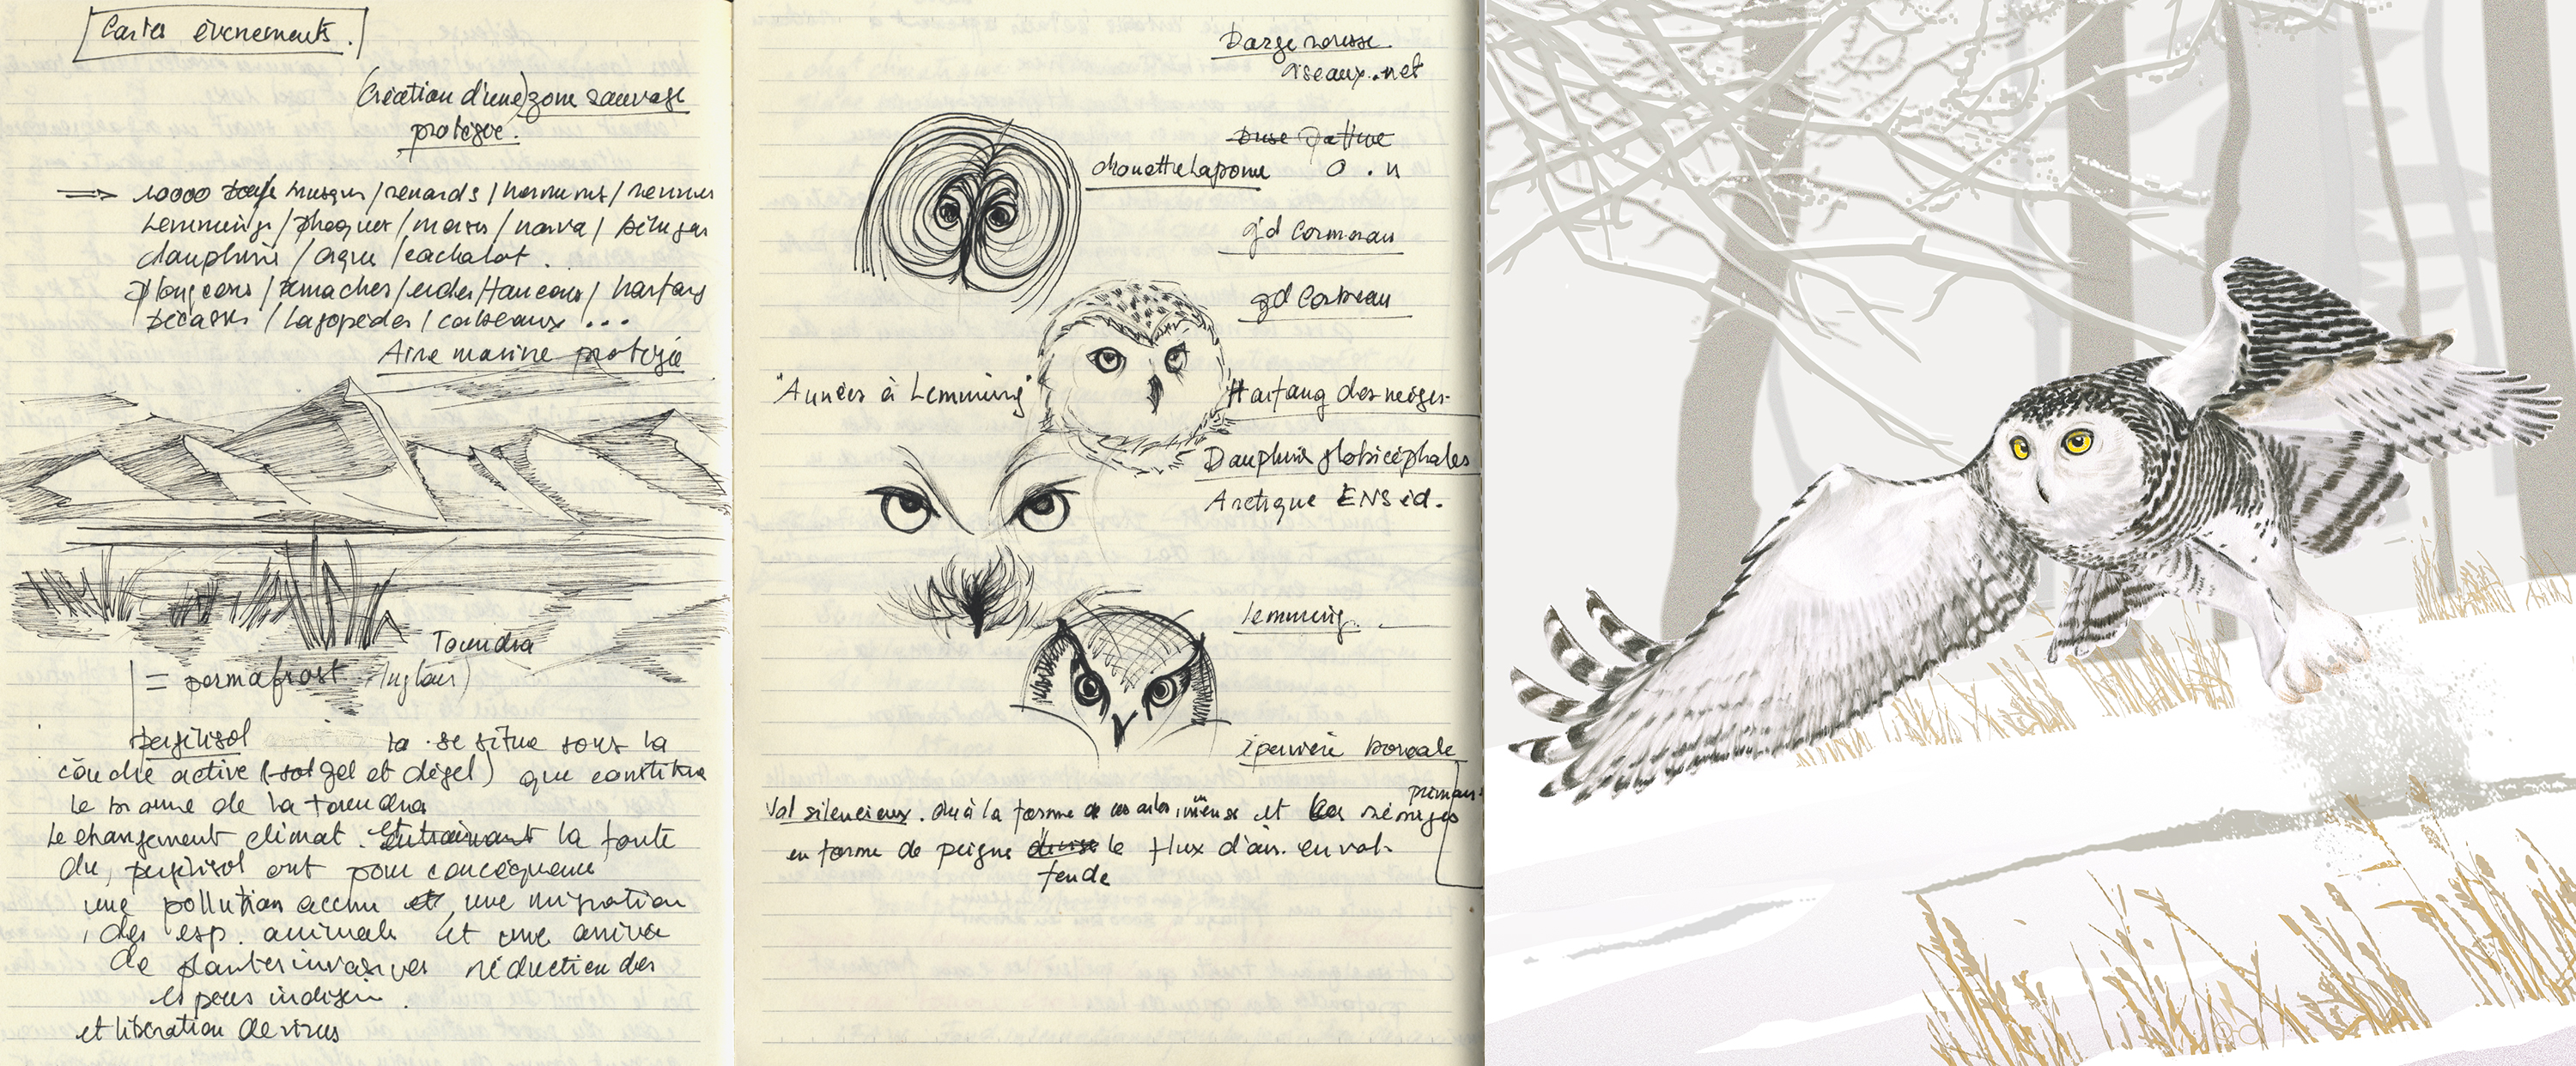 Cartes évènements.
(Création d'une) zone sauvage
protégée.
⇒ 10000 bœufs musqués / renards / hermines / rennes
Lemmings / phoques / morses / narval / bélugas
dauphins / orques / cachalot.
Plongeons / bernaches / eiders / faucons / harfang
bécasses / Lagopèdes / corbeaux ...
Aire marine protégée
Toundra
= permafrost (anglais)
pergélisol la se situe sous la
couche active (sol gel et dégel) que constitue
le biome de la toundra
Le changement climat. entrainant la fonte
du pergélisol ont pour conséquence
une pollution accrue et, une migration
des esp. animale et une arrivée
de plantes invasives réduction des
espèces indigèn.
et libération de virus
oiseaux.net
buse pattue
chouette Lapone O.n
gd Cormoran
gd Corbeau
"Années à Lemming" Harfang des neiges
Dauphins globicéphales
Arctique ENS éd.
Lemming.
épervière boréale
Vol silencieux. du à la forme de ces ailes immense et les rémiges primaires
en forme de peigne divise le flux d'air. en vol.
fende